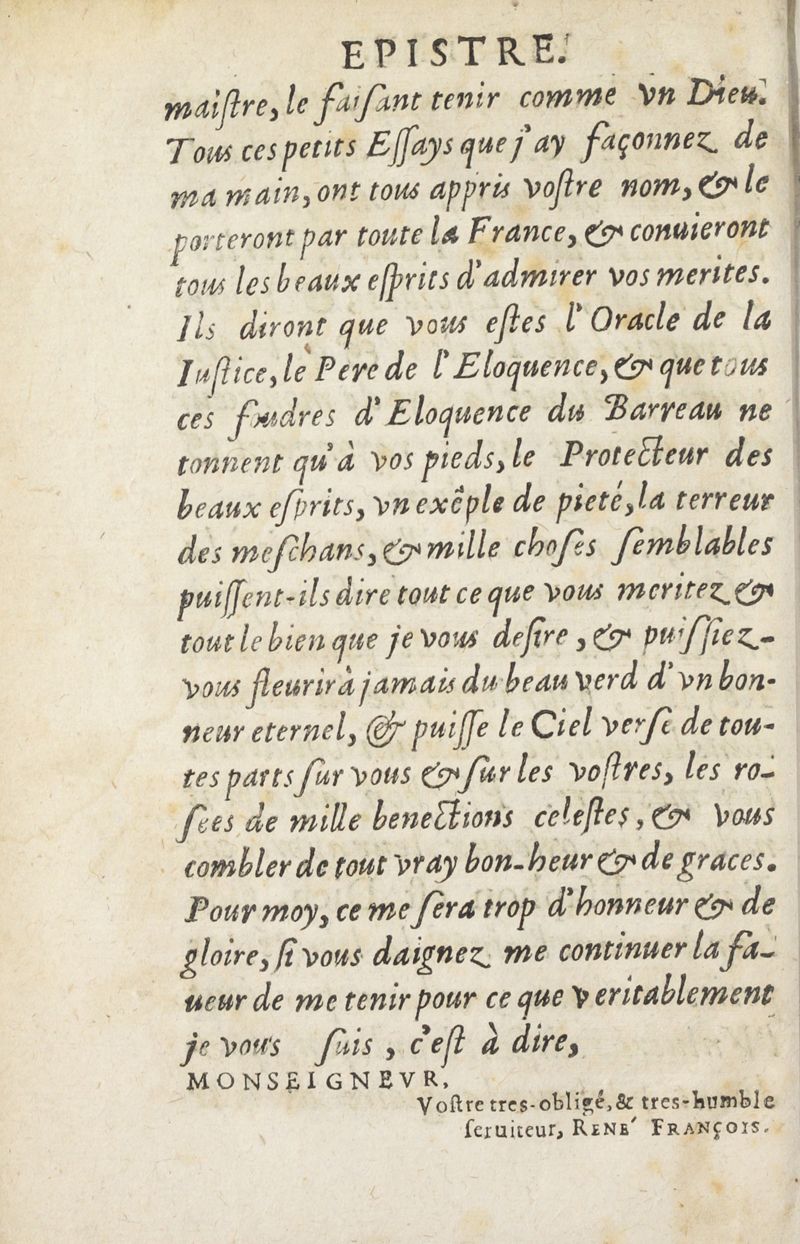 EPISTRE.
maiſtre, le faiſant tenir comme vn Dieu.
Tous ces petits Eſſays que j'ay façonnez de
ma main, ont tous appris voſtre nom, & le
porteront par toute la France, & conuieront
tous les beaux eſprits d'admirer vos merites.
Ils diront que vous eſtes l'Oracle de la
Iuſtice, le Pere de l'Eloquence, & que tous
ces foudres d'Eloquence du Barreau ne
tonnent qu'à vos pieds, le Protecteur des
beaux eſprits, vn exẽple de pieté, la terreur
des meſchans, & mille choſes ſemblables
puiſſent-ils dire tout ce que vous meritez &
tout le bien que je vous deſire, & puiſſiez-
vous fleurir à jamais du beau verd d'vn bon-
neur eternel, & puiſſe le Ciel verſe de tou-
tes parts ſur vous & ſur les voſtres, les ro-
ſees de mille benections celeſtes, & vous
combler de tout vray bon-heur & de graces.
Pour moy, ce me ſera trop d'honneur & de
gloire, ſi vous daignez me continuer la fa-
ueur de me tenir pour ce que veritablement
je vous ſuis, c'eſt à dire,
MONSEIGNEVR,
Voſtre tres-obligé, & tres-humble
ſeruiteur, RENE' FRANÇOIS.